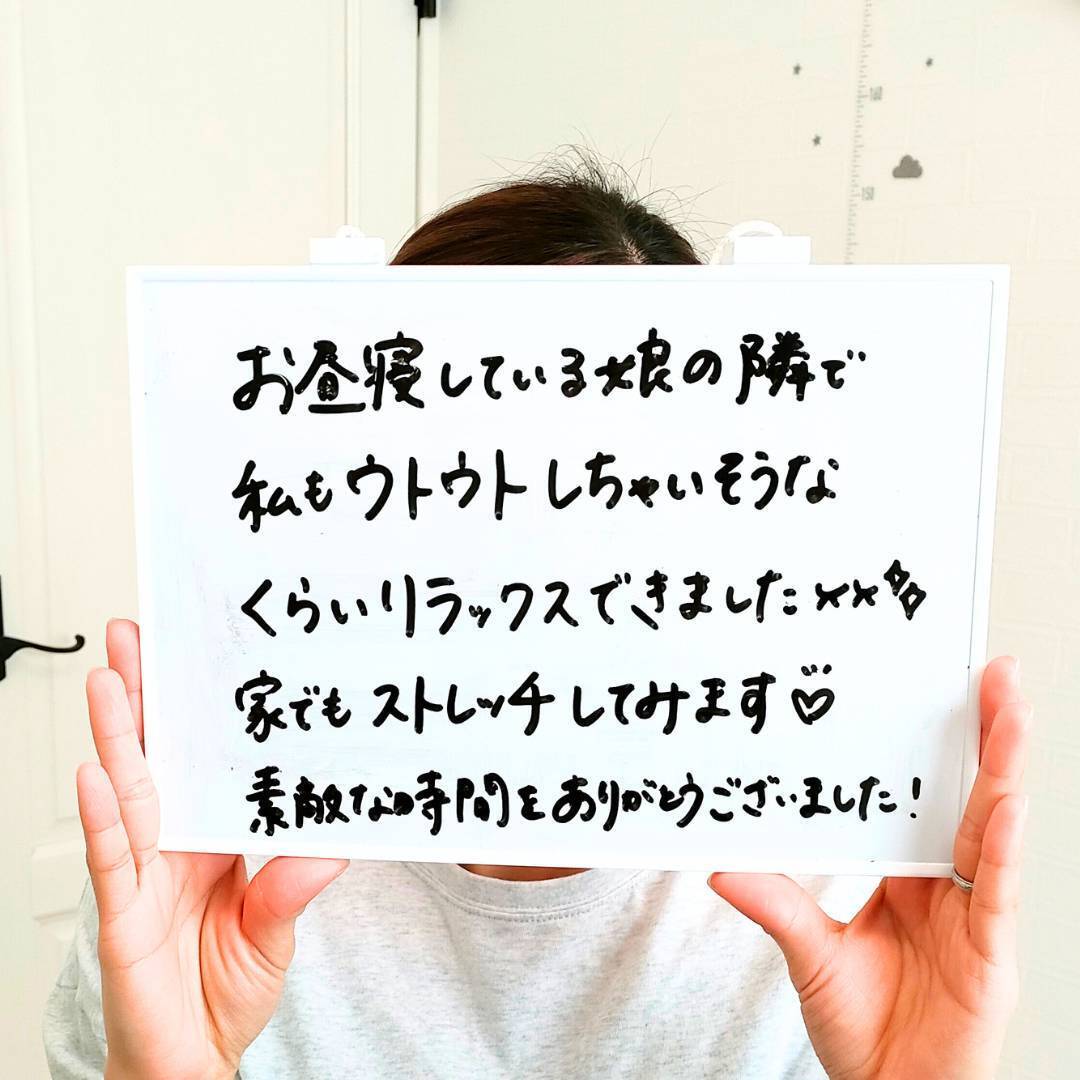 お昼寝している娘の隣で
私もウトウトしちゃいそうな
くらいリラックスできました××
家でもストレッチしてみます♡
素敵な時間をありがとうございました!